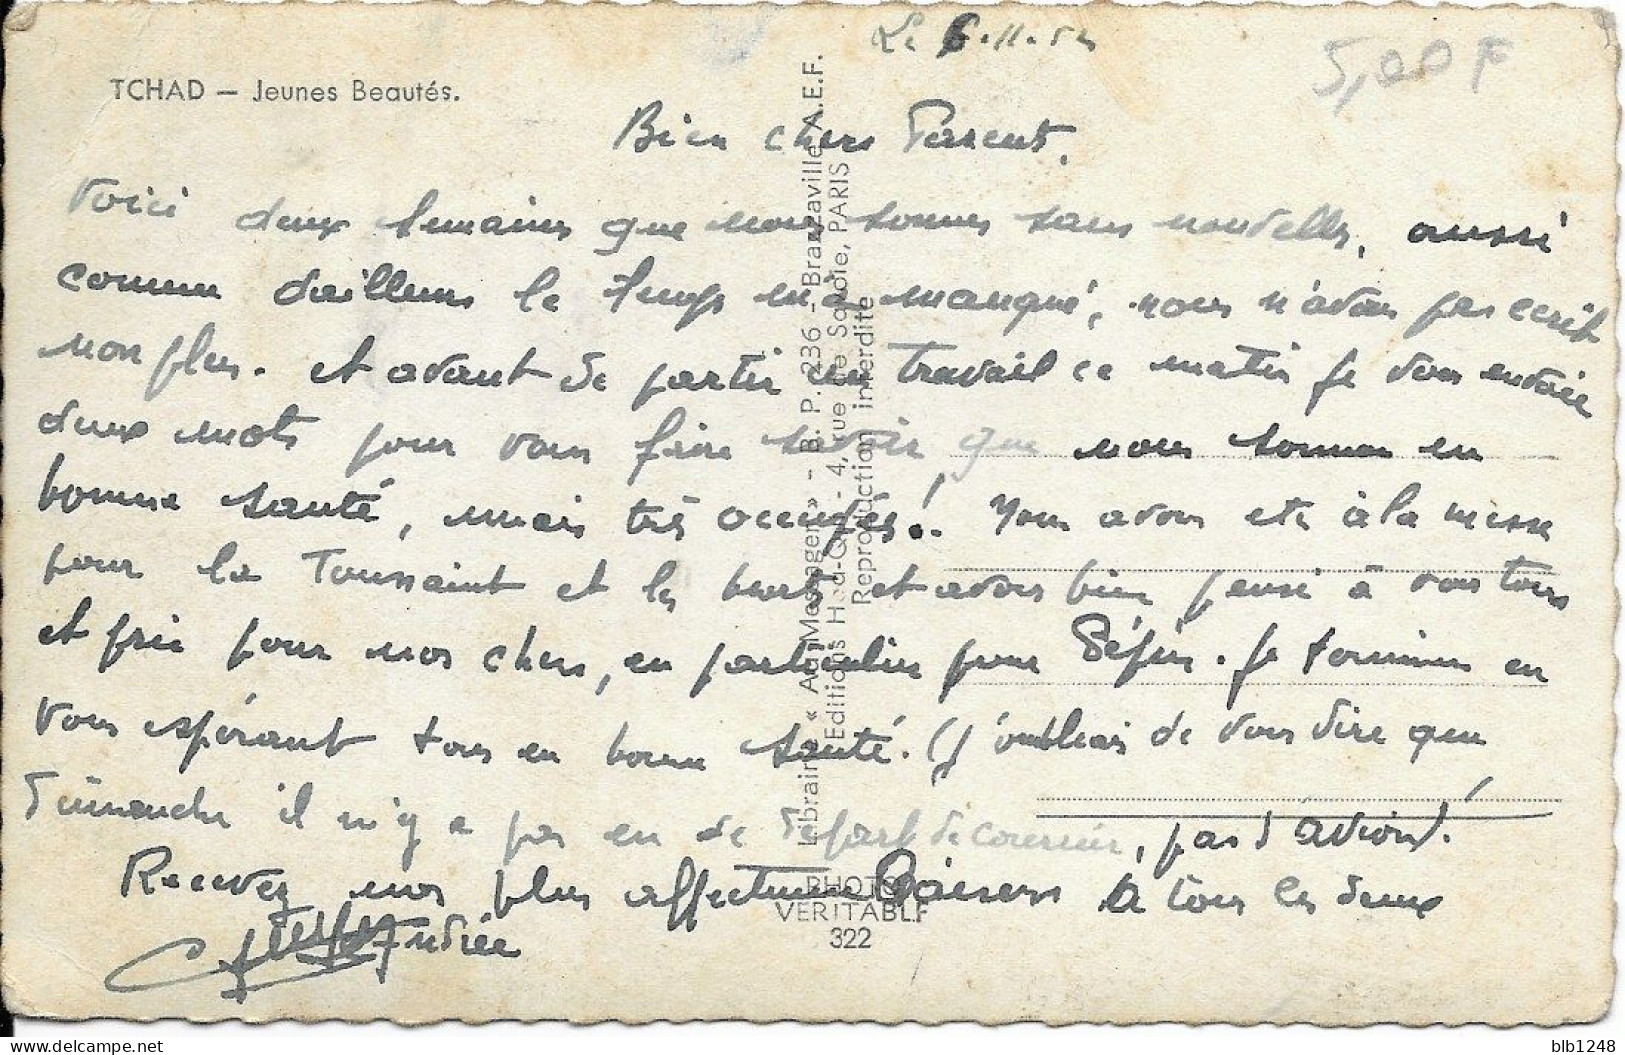 Le 6-11-52
5,00 F
TCHAD – Jeunes Beautés.
Bien chers Parents,
Voici deux semaines que nous sommes sans nouvelles, aussi
comme d'ailleurs le temps m'a manqué, nous n'avons pas ecrit
non plus. et avant de partir au travail ce matin je vous envoie
deux mots pour vous faire savoir que nous sommes en
bonne santé, mais très occupés!. Nous avons ete à la messe
pour la Toussaint et les morts et avons bien pensé à vous tous
et prié pour nos chers, en particulier pour Pépin. Je termine en
vous espérant tous en bonne santé. (j'oubliais de vous dire que
Dimanche il n'y a pas eu de départ de courrier, pas d'avion).
Recevez nos plus affectueux Baisers à tous les deux
Andrée
Librairie « Au Messager » - B. P. 236 - Brazzaville A.E.F.
Editions - 4, rue de Savoie, PARIS
Reproduction interdite
PHOTO
VERITABLE
322
blb1248